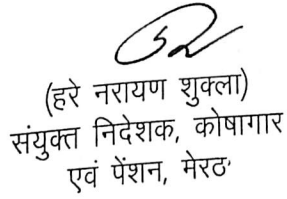 (हरे नरायण शुक्ला)
संयुक्त निदेशक, कोषागार
एवं पेंशन, मेरठ